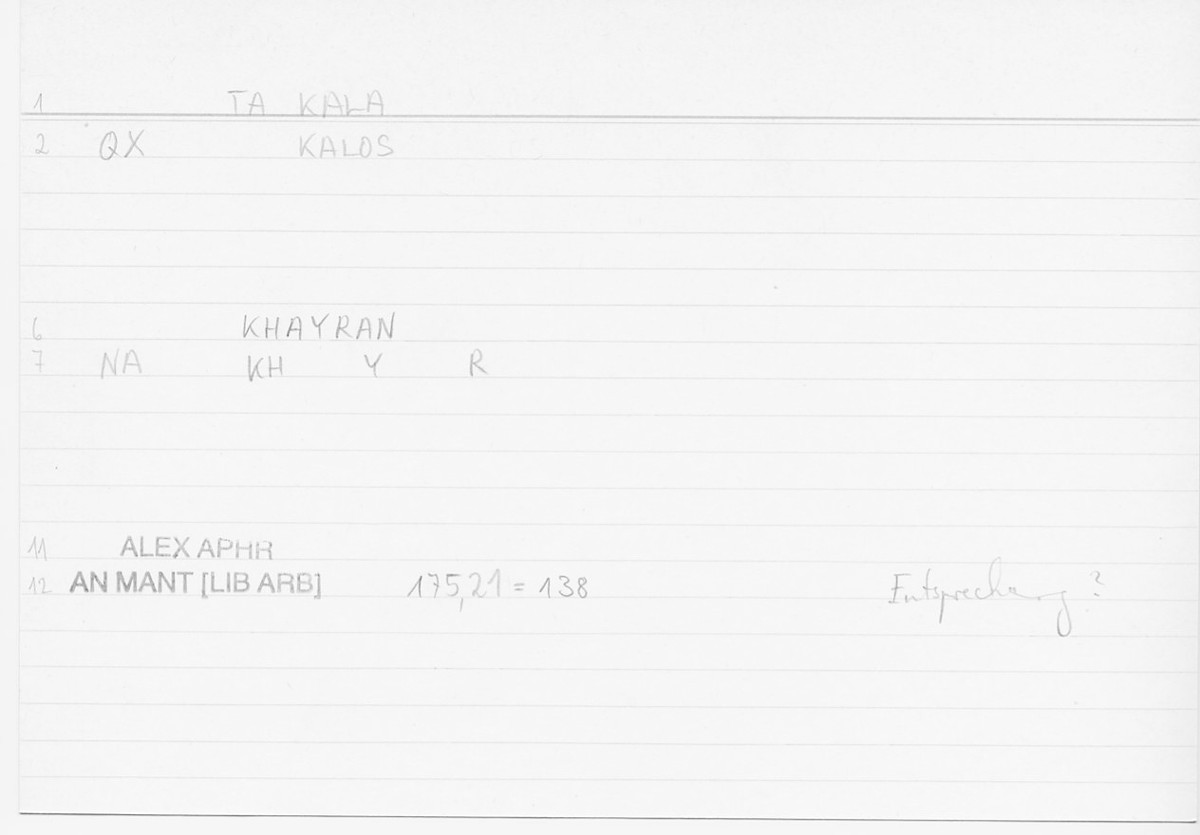 1 TA KALA
2 QX KALOS
6 KHAYRAN
7 NA KH Y R
11 ALEX APHR
12 AN MANT [LIB ARB] 175,21 = 138 Entsprechung?